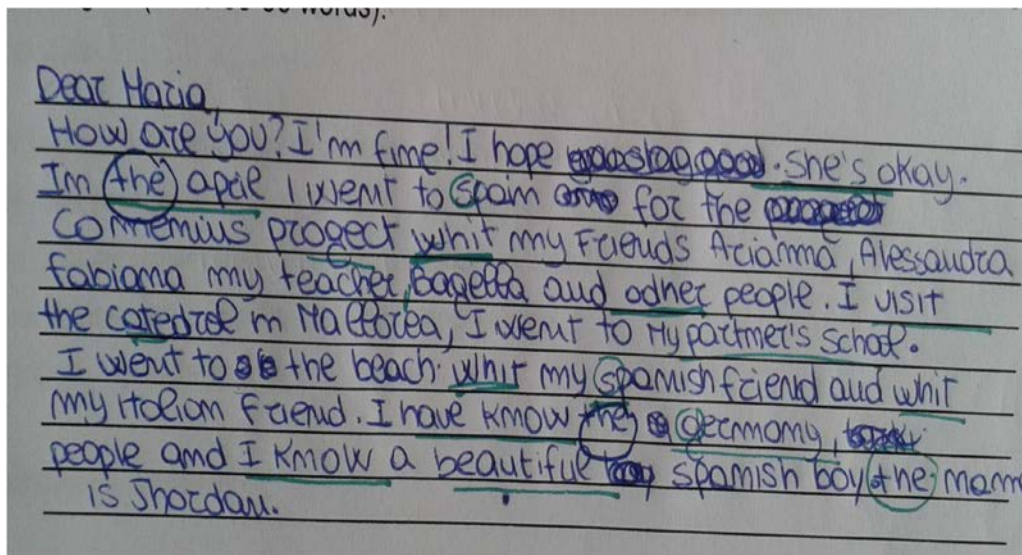 Dear Maria,
How are you? I'm fine! I hope . She's okay.
In the april I went to spain for the
Commenius progect whit my Friends Arianna, Alessandra
fabiana my teacher, and odher people. I visit
the catedral in Mallorca, I went to My partner's school.
I went to the beach. whit my spanish friend and whit
my italian friend. I have know the germany,
people and I know a beautiful spanish boy the name
is Jhordan.